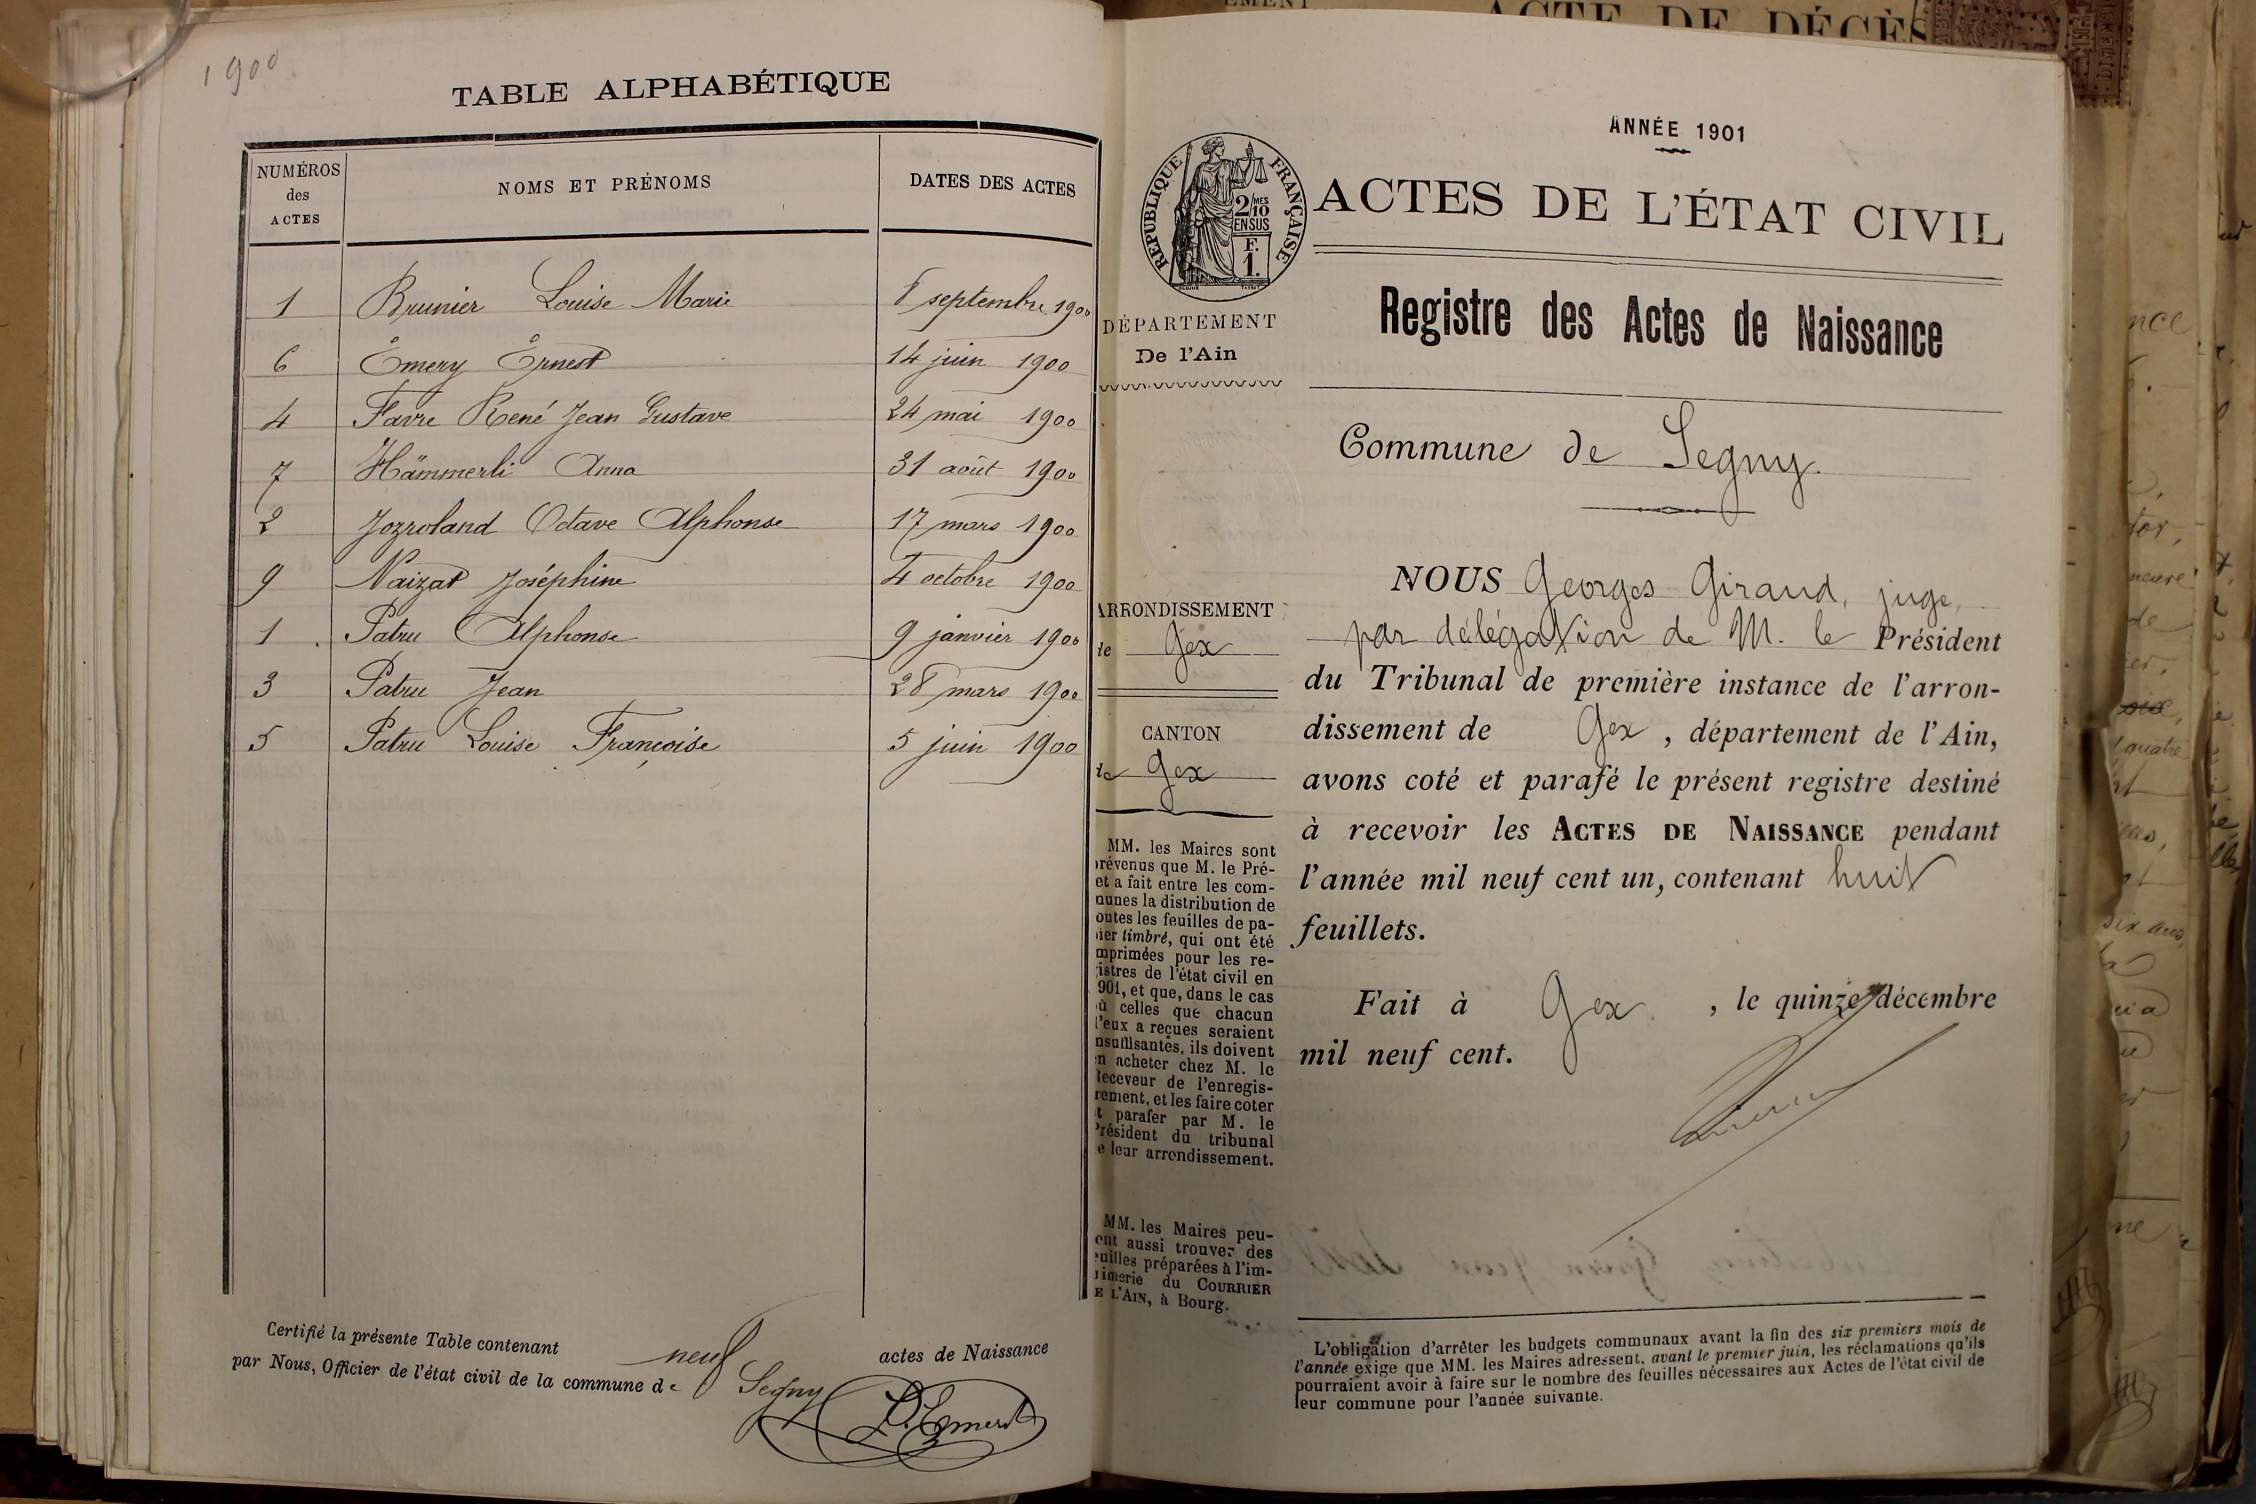 1900
TABLE ALPHABÉTIQUE
NUMÉROS
des
ACTES
NOMS ET PRÉNOMS
DATES DES ACTES
1 Brunier Louise Marie 8 septembre 1900
6 Émery Ernest 14 juin 1900
4 Favre René Jean Gustave 24 mai 1900
7 Hämmerli Anna 31 août 1900
2 Jozroland Octave Alphonse 17 mars 1900
9 Naizat Joséphine 4 octobre 1900
1 Patru Alphonse 9 janvier 1900
3 Patru Jean 28 mars 1900
5 Patru Louise Françoise 5 juin 1900
Certifié la présente Table contenant neuf actes de Naissance
par Nous, Officier de l'état civil de la commune de Segny
ACTE DE DÉCÈS
ANNÉE 1901
RÉPUBLIQUE FRANÇAISE
2/10
MES
EN SUS
F.
1.
ACTES DE L'ÉTAT CIVIL
Registre des Actes de Naissance
DÉPARTEMENT
De l'Ain
Commune de Segny.
ARRONDISSEMENT
de Gex
CANTON
de Gex
MM. les Maires sont
prévenus que M. le Pré-
et a fait entre les com-
munes la distribution de
toutes les feuilles de pa-
pier timbré, qui ont été
imprimées pour les re-
gistres de l'état civil en
1901, et que, dans le cas
où celles que chacun
d'eux a reçues seraient
insuffisantes, ils doivent
en acheter chez M. le
Receveur de l'enregis-
trement, et les faire coter
et parafer par M. le
Président du tribunal
de leur arrondissement.
MM. les Maires peu-
vent aussi trouver des
feuilles préparées à l'im-
primerie du COURRIER
DE L'AIN, à Bourg.
NOUS Georges Giraud, juge,
par délégation de M. le Président
du Tribunal de première instance de l'arron-
dissement de Gex, département de l'Ain,
avons coté et parafé le présent registre destiné
à recevoir les ACTES DE NAISSANCE pendant
l'année mil neuf cent un, contenant huit
feuillets.
Fait à Gex, le quinze décembre
mil neuf cent.
L'obligation d'arrêter les budgets communaux avant la fin des six premiers mois de
l'année exige que MM. les Maires adressent, avant le premier juin, les réclamations qu'ils
pourraient avoir à faire sur le nombre des feuilles nécessaires aux Actes de l'état civil de
leur commune pour l'année suivante.